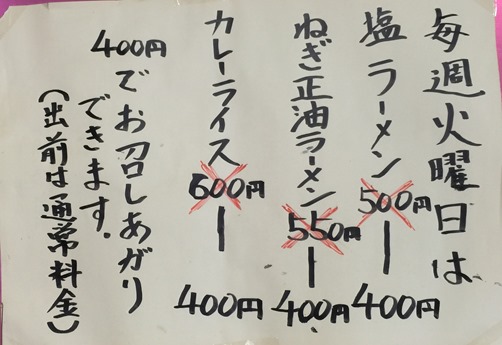 毎週火曜日は
塩ラーメン 500円ー400円
ねぎ正油ラーメン 550円ー400円
カレーライス 600円ー400円
400円でお召しあがり
できます。
（出前は通常料金）